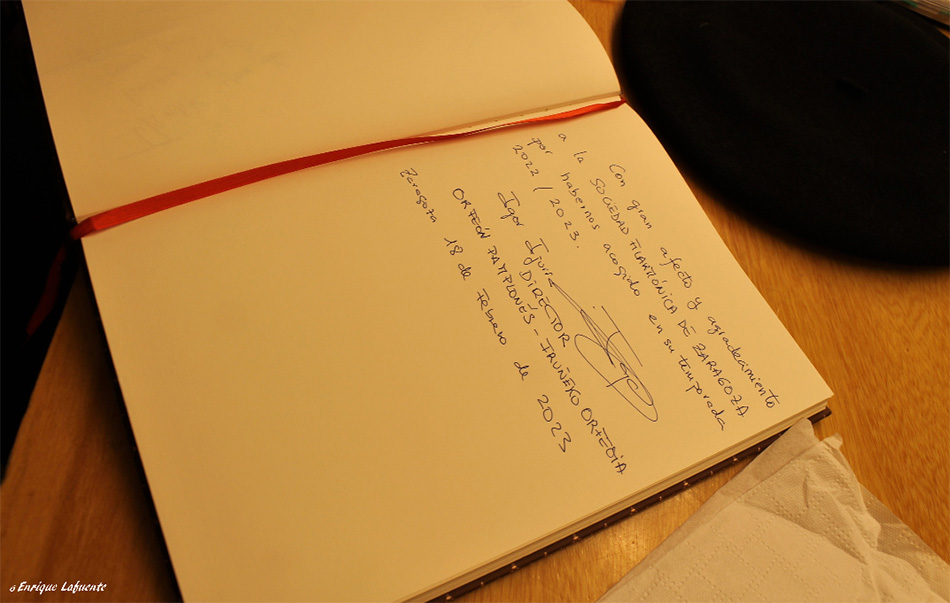 Con gran afecto y agradecimiento
a la SOCIEDAD FILARMÓNICA DE ZARAGOZA
por habernos acogido en su temporada
2022 / 2023.
Igor Ijurra
DIRECTOR
ORFEÓN PAMPLONÉS - IRUÑEKO ORFEOIA
Zaragoza 18 de Febrero de 2023
Enrique Lafuente